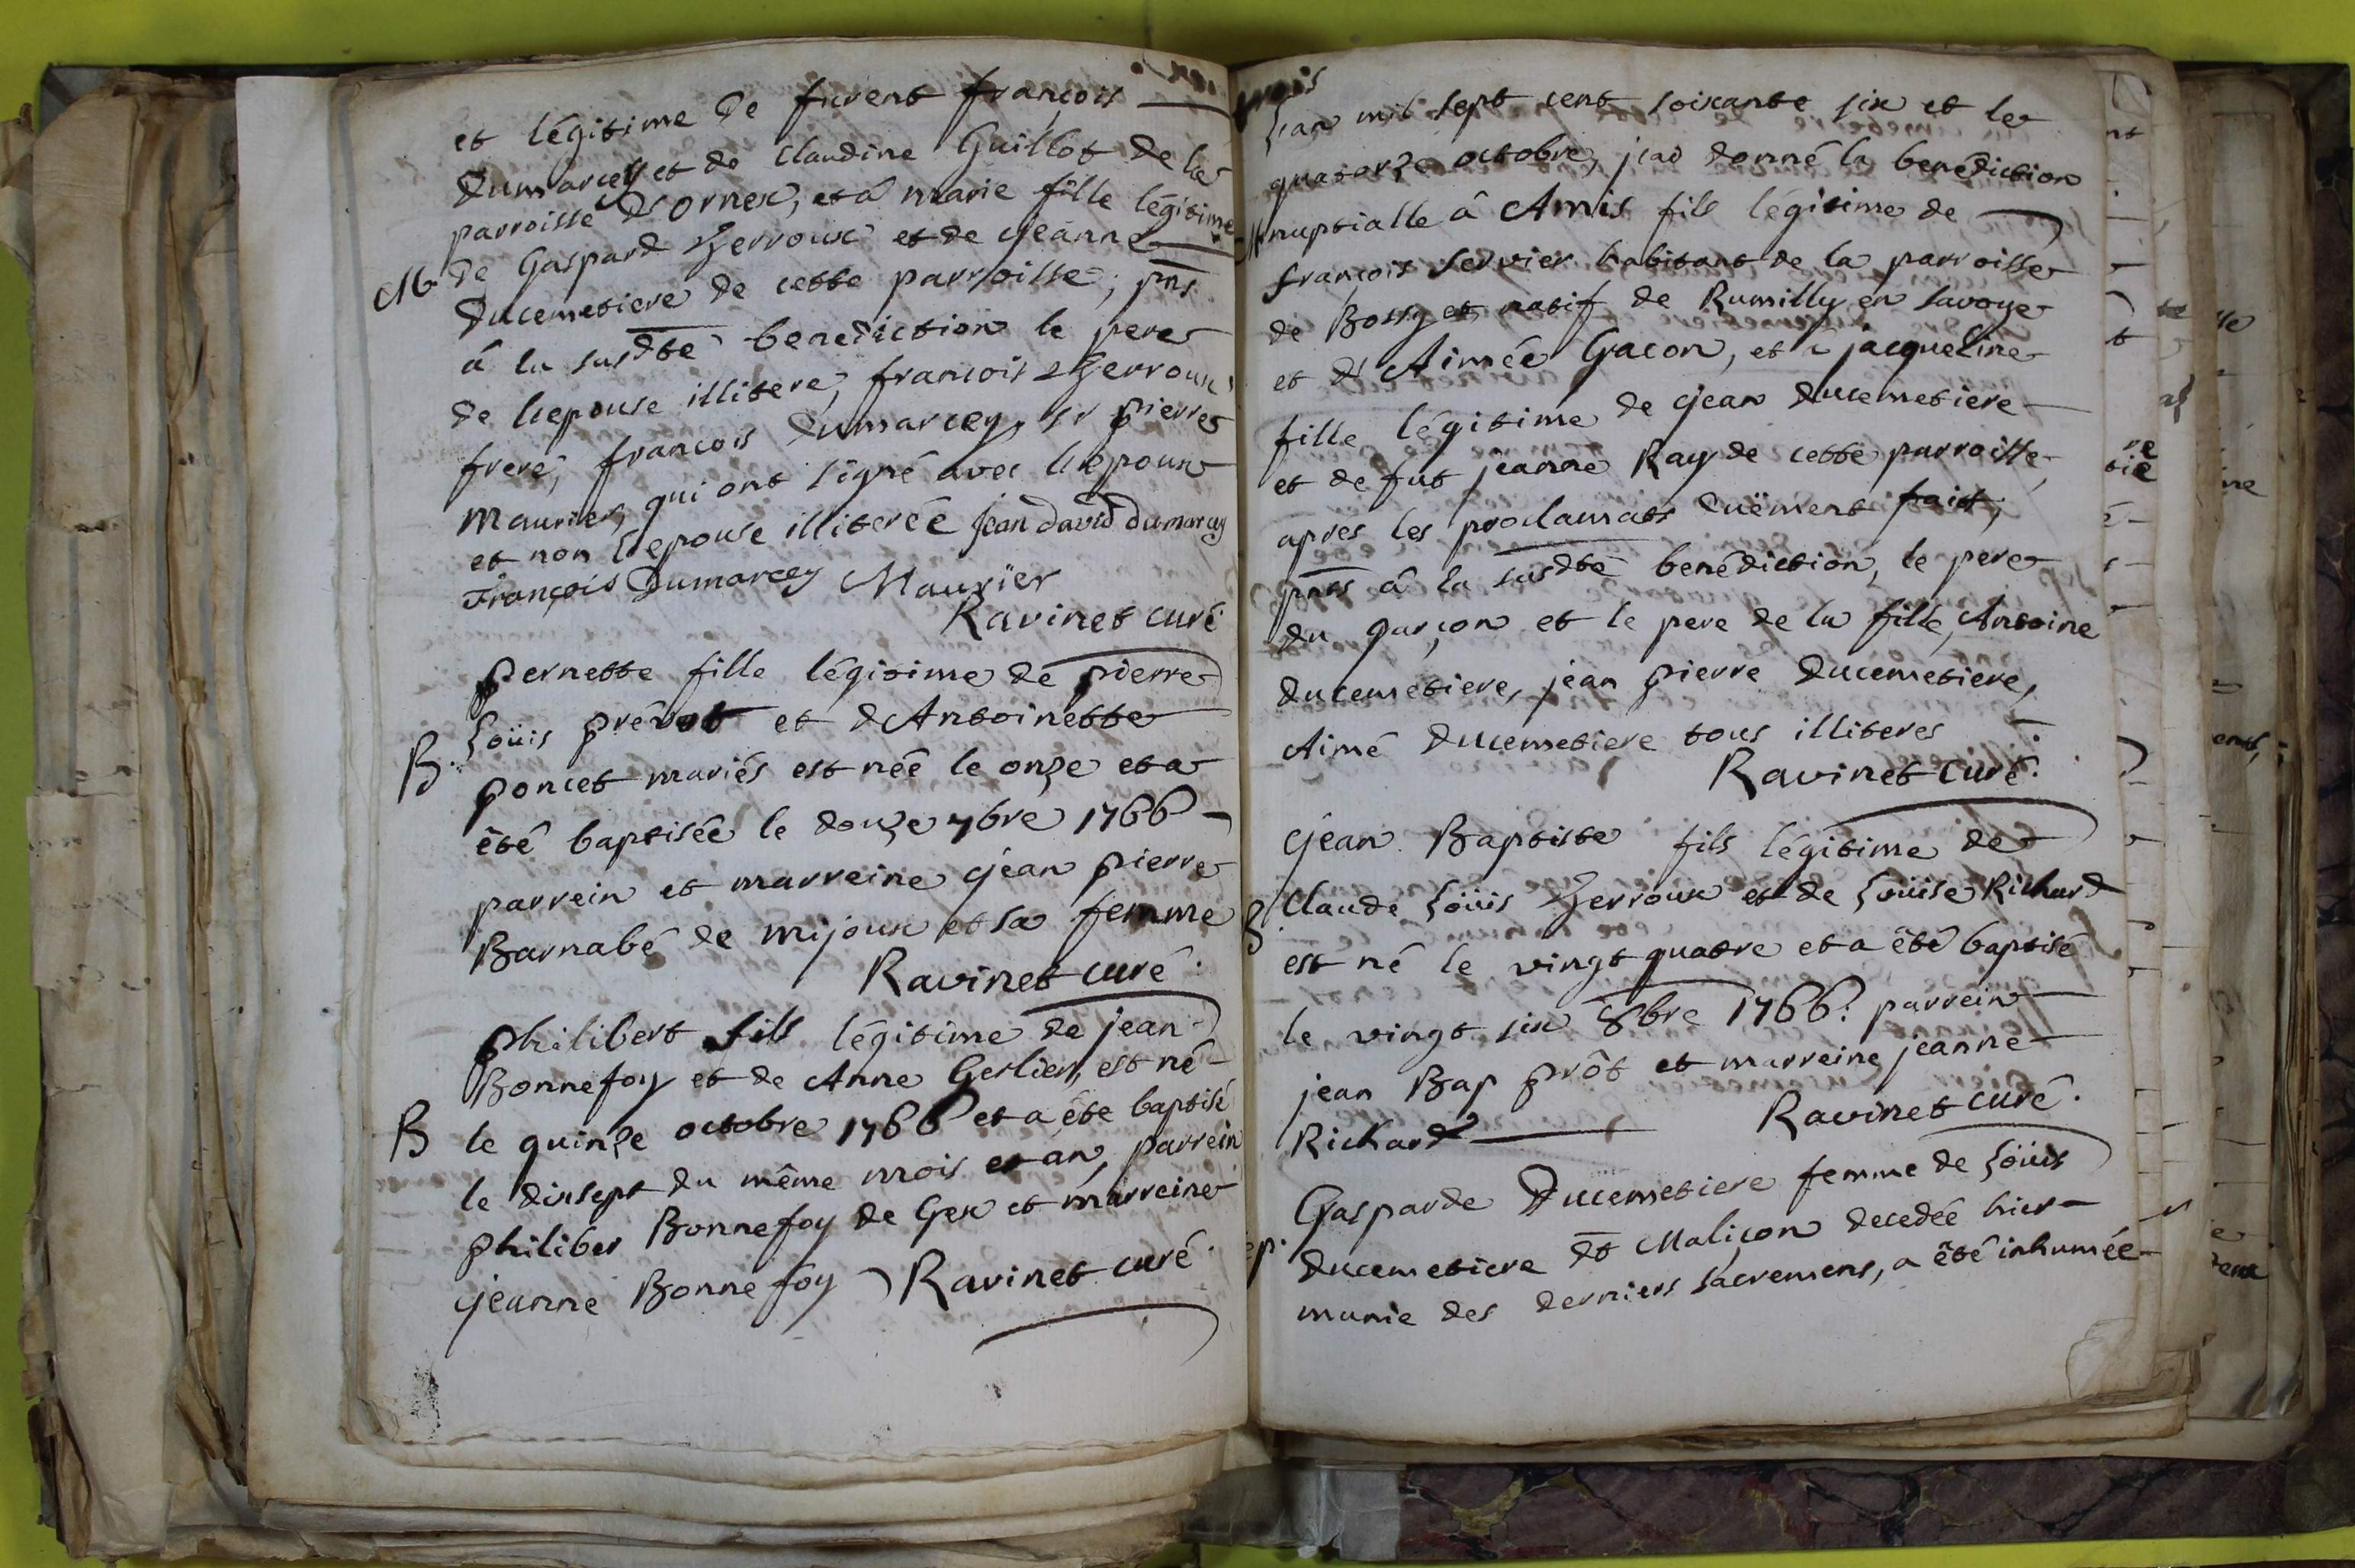 et légitime de furent françois
Dumarcey et de Claudine Guillot de la
parroisse d'Ornex, et à marie fille légitime
M. de Gaspard Gerroux et de jeanne
Ducemetiere de cette parroisse; pns
â la susdte benediction le pere
de l'epouse illitere, francois Gerroux
frere, francois Dumarcey, sr pierre
Maurier, qui ont signé avec l'epoux
et non l'epouse illiterée jean david dumarcey
François Dumarcey Maurïer
Ravinet curé
pernette fille légitime de pierre
Loüis prévot et d'Antoinette
B. poncet mariés est née le onze et a
êté baptisée le douze 7bre 1766
parrein et marreine jean pierre
Barnabé de mijoux et sa femme
Ravinet curé.
philibert fils légitime de jean
Bonnefoy et de Anne Gerlier, est né
B le quinze octobre 1766 et a éte baptisé
le dixsept du même mois et an, parrein
philiber Bonnefoy de Gex et marreine
jeanne Bonnefoy Ravinet curé.
L'an mil sept cent soixante six et le
quatorze octobre, j'ai donné la benédiction
M nuptialle â Amis fils légitime de
françois Servier habitant de la parroisse
de Bossy et natif de Rumilly en Savoye
et d'Aimée Gacon, et a jacqueline
fille légitime de jean Ducemetiere
et de fut jeanne Ray de cette parroisse,
apres les proclamats duëment fait,
pnts â la susdte benédiction, le pere
du garçon et le pere de la fille, Antoine
Ducemetiere, jean pierre Ducemetiere,
Aimé Ducemetiere tous illiteres
Ravinet curé.
jean Baptiste fils légitime de
B. Claude Loüis Gerroux et de Loüise Richard
est né le vingt quatre et a êté baptisé
le vingt six 8bre 1766. parrein
jean Bap prôt et marreine jeanne
Richard Ravinet curé.
Gasparde Ducemetiere femme de Loüis
Ducemetiere dt Maliçon decedée hier
munie des derniers sacremens, a êté inhumée